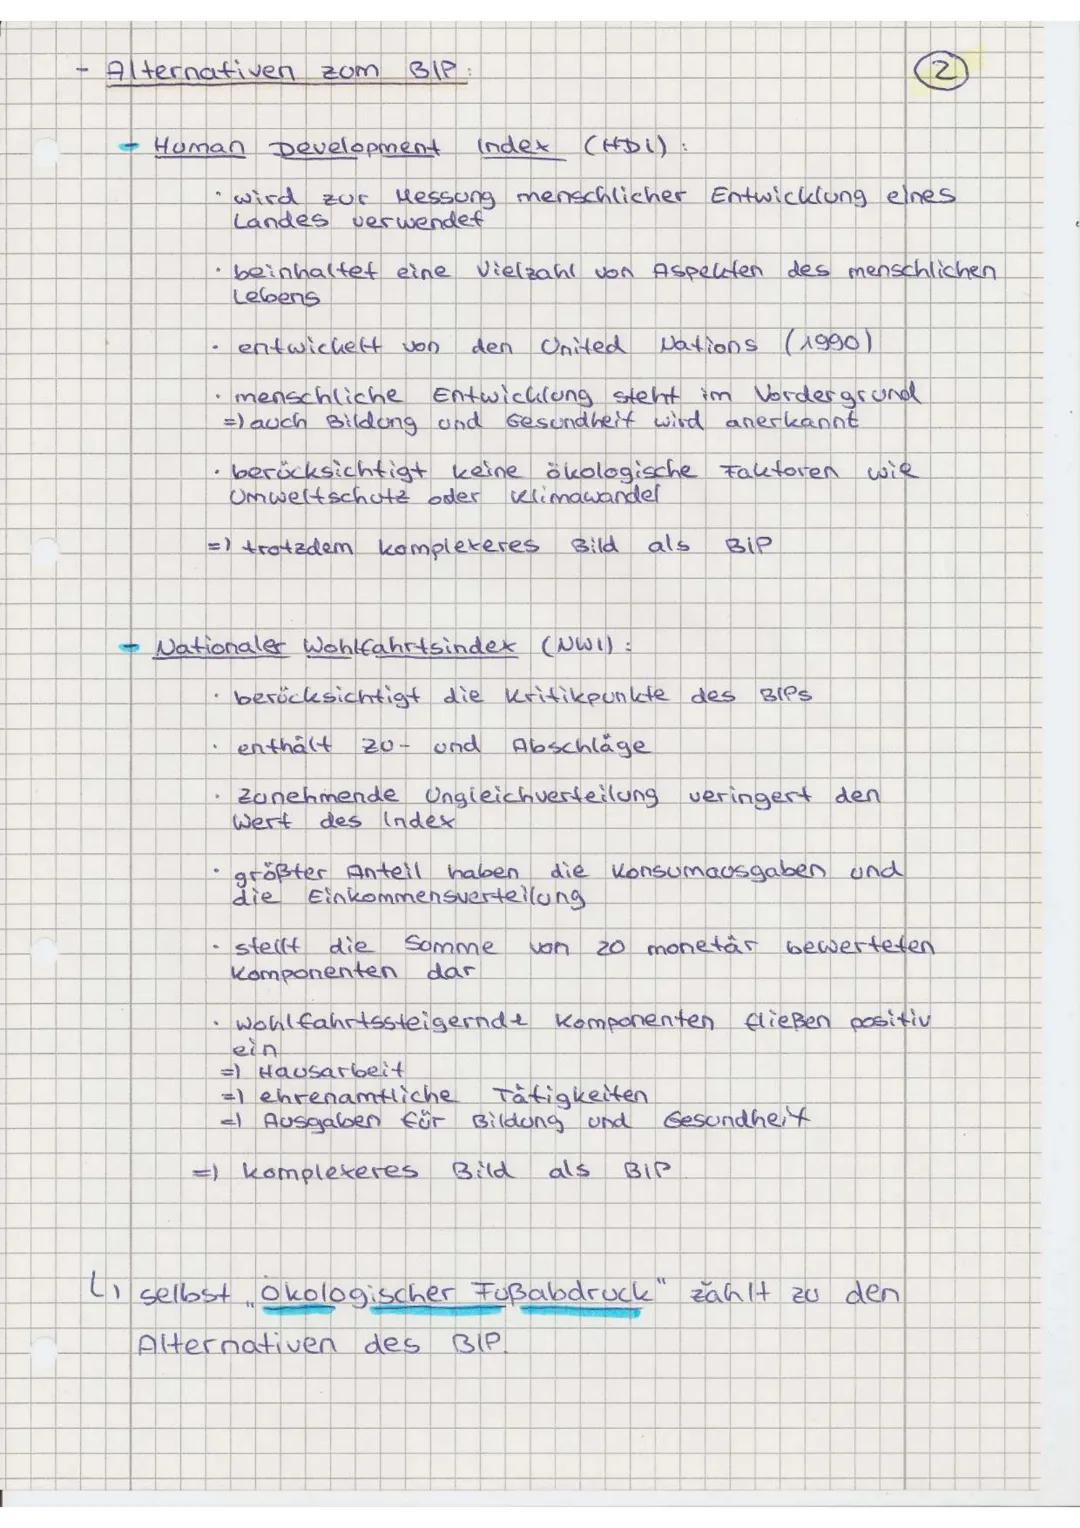 - Alternativen zum BIP:
2
- Human Development Index (HDI):
· wird zur Messung menschlicher Entwicklung eines
Landes verwendet
· beinhaltet eine Vielzahl von Aspekten des menschlichen
Lebens
· entwickelt von den United Nations (1990)
· menschliche Entwicklung steht im Vordergrund
=) auch Bildung und Gesundheit wird anerkannt
· berücksichtigt keine ökologische Faktoren wie
Umweltschutz oder Klimawandel
=) trotzdem komplexeres Bild als BIP
- Nationaler Wohlfahrtsindex (NWI):
· berücksichtigt die Kritikpunkte des BIPs
· enthält zu- und Abschläge
· zunehmende Ungleichverteilung veringert den
Wert des Index
· größter Anteil haben die Konsumausgaben und
die Einkommensverteilung
· stellt die Summe von 20 monetär bewerteten
Komponenten dar
· wohlfahrtssteigernde Komponenten fließen positiv
ein
=) Hausarbeit
=) ehrenamtliche Tätigkeiten
=) Ausgaben für Bildung und Gesundheit
=) komplexeres Bild als BIP
↳ selbst „Ökologischer Fußabdruck" zählt zu den
Alternativen des BIP.